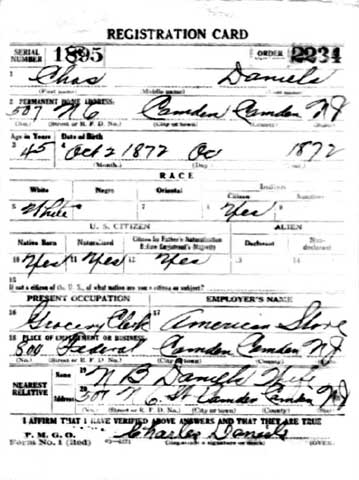 REGISTRATION CARD
SERIAL NUMBER 1895 ORDER NUMBER 2234
1 Chas Daniels
(First name) (Middle name) (Last name)
2 PERMANENT HOME ADDRESS:
507 N 6 Camden Camden NJ
(No.) (Street or R. F. D. No.) (City or town) (County) (State)
Age in Years Date of Birth
3 45 4 Oct 2 1872 Oct 1872
(Month.) (Day.)
RACE
White Negro Oriental Indian
Citizen Noncitizen
5 White 6 7 8 Yes 9
U. S. CITIZEN ALIEN
Native Born Naturalized Citizen by Father's Naturalization Before Registrant's Majority Declarant Non-declarant
10 Yes 11 Yes 12 Yes 13 14
15
If not a citizen of the U. S., of what nation are you a citizen or subject?
PRESENT OCCUPATION EMPLOYER'S NAME
16 Grocery Clerk 17 American Store
18 PLACE OF EMPLOYMENT OR BUSINESS:
500 Federal Camden Camden NJ
(No.) (Street or R. F. D. No.) (City or town) (County) (State)
NEAREST RELATIVE Name 19 N B Daniels Wife
Address 20 507 N 6 St Camden Camden NJ
(No.) (Street or R. F. D. No.) (City or town) (County) (State)
I AFFIRM THAT I HAVE VERIFIED ABOVE ANSWERS AND THAT THEY ARE TRUE
P. M. G. O.
Form No. 1 (Red) Charles Daniels
(Registrant's signature or mark) (OVER)